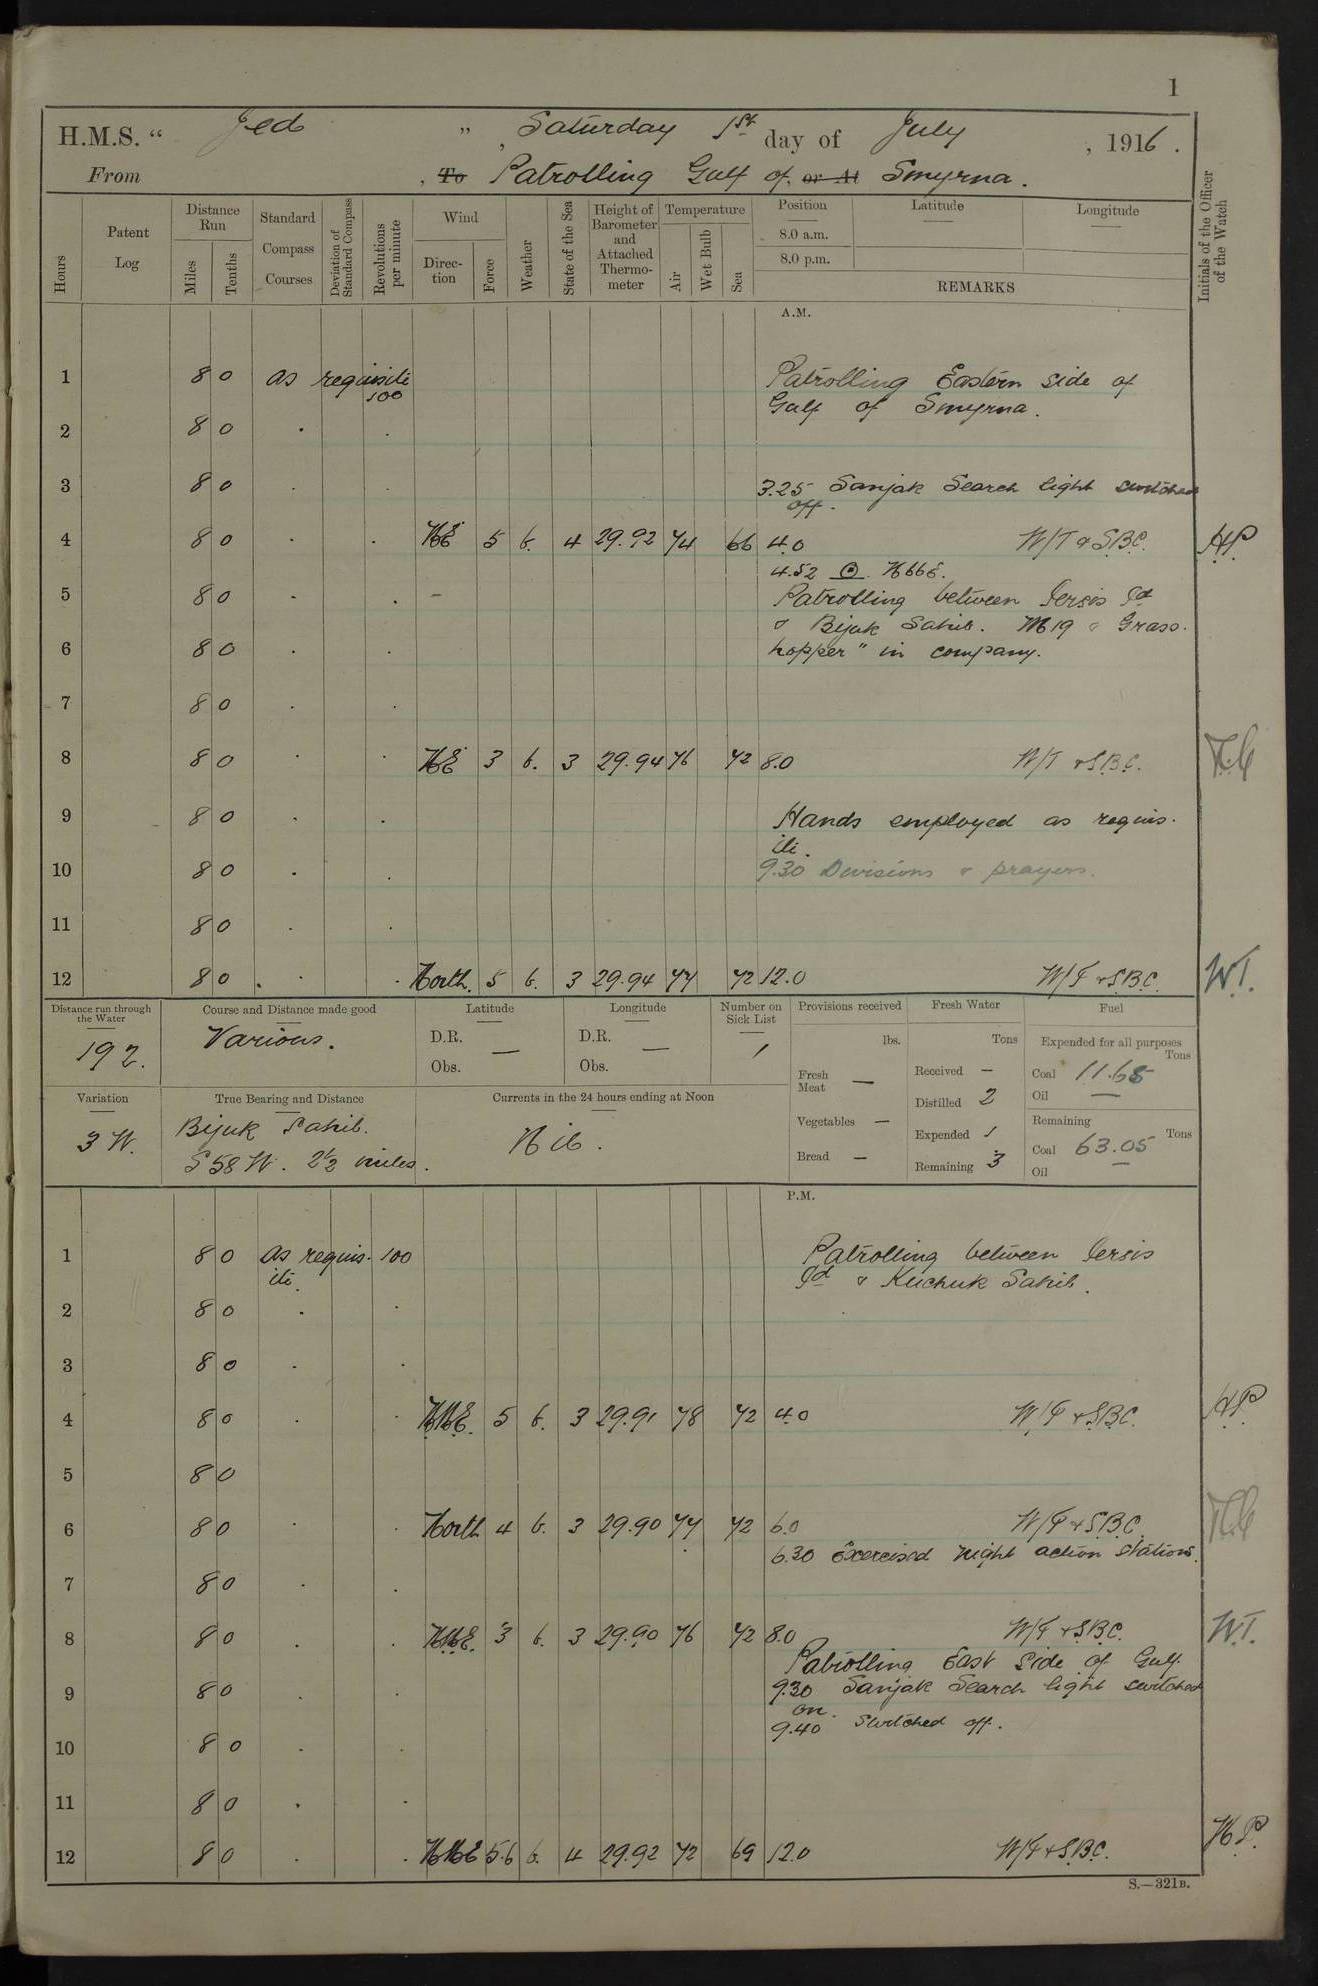 1
H.M.S. “ Jed ” , Saturday 1st day of July , 1916 .
From , To Patrolling Gulf of or At Smyrna .
Hours
Patent Log
Distance Run
Miles
Tenths
Standard Compass Courses
Deviation of Standard Compass
Revolutions per minute
Wind
Direction
Force
Weather
State of the Sea
Height of Barometer and Attached Thermometer
Temperature
Air
Wet Bulb
Sea
Position
8.0 a.m.
8.0 p.m.
Latitude
Longitude
REMARKS
Initials of the Officer of the Watch
A.M.
1 8 0 as requisite 100 Patrolling Eastern side of
Gulf of Smyrna .
2 8 0 . .
3 8 0 . . 3.25 Sanjak Search light switched
off .
4 8 0 . . 5 b. 4 29.92 74 66 4.0 W/T & S.B.C. H.P.
4.52
5 8 0 . . Patrolling between Id
& Bijuk Sahib. M19 & Grass-
6 8 0 . . hopper " in company.
7 8 0 . .
8 8 0 . . 3 b. 3 29.94 76 72 8.0 W/T & S.B.C.
9 8 0 . . Hands employed as requis-
ite.
10 8 0 . . 9.30 Divisions & prayers.
11 8 0 . .
12 8 0 . . North. 5 b. 3 29.94 77 72 12.0 W/T & S.B.C. W.T.
Distance run through the Water
192.
Course and Distance made good
Various.
Latitude
D.R.
Obs. —
Longitude
D.R.
Obs. —
Number on Sick List
1
Provisions received
lbs.
Fresh Meat —
Vegetables —
Bread —
Fresh Water
Tons
Received —
Distilled 2
Expended 1
Remaining 3
Fuel
Expended for all purposes
Tons
Coal 11.65
Oil —
Remaining
Tons
Coal 63.05
Oil —
Variation
3 W.
True Bearing and Distance
Bijuk Sahib.
S 58 W. 2½ miles.
Currents in the 24 hours ending at Noon
Nil .
P.M.
1 8 0 as requis- 100 Patrolling between
ite. Id & Kuchuk Sahib .
2 8 0 . .
3 8 0 . .
4 8 0 . . N.N.E. 5 b. 3 29.91 78 72 4.0 W/T & S.B.C. H.P.
5 8 0
6 8 0 . . North 4 b. 3 29.90 77 72 6.0 W/T & S.B.C.
6.30 Exercised night action stations.
7 8 0 . .
8 8 0 . . 3 b. 3 29.90 76 72 8.0 W/T & S.B.C. W.T.
Patrolling East Side of Gulf.
9 8 0 . . 9.30 Sanjak Search light switched
on.
9.40 Switched off.
10 8 0 . .
11 8 0 . .
12 8 0 . . 5.6 b. 4 29.92 72 69 12.0 W/T & S.B.C. H.P.
S.—321B.